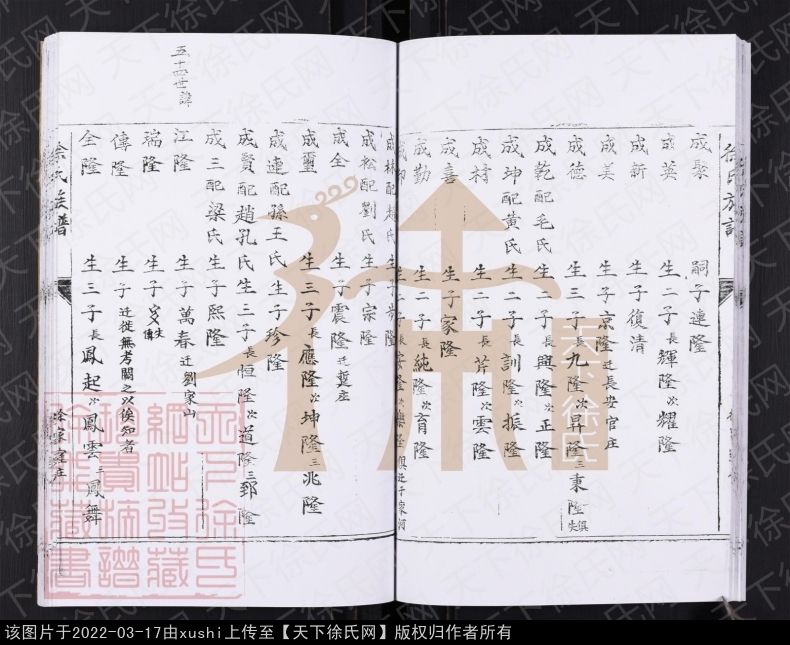 徐氏族譜
成聚 嗣子連隆
成英 生二子長輝隆次耀隆
成新 生子復清
成美 生子京隆迁長安官庄
成德 生三子長九隆次昇隆三秉隆俱失
成乾配毛氏 生二子長興隆次正隆
成坤配黄氏 生二子長訓隆次振隆
生二子長芹隆次雲隆
成喜 生子家隆
成勤 生二子長純隆次育隆
生二子
成松配劉氏 生子宗隆
成全 生子震隆迁
成璽 生三子長應隆次坤隆三兆隆
成連配孫王氏 生子珍隆
成貴配趙孔氏 生三子長恒隆次道隆三郅隆
成三配梁氏 生子熙隆
五十四世諱
江隆 生子萬春迁劉家山
瑞隆 生子
傳隆 生子迁徙無考闕之以俟知者
全隆 生三子長鳳起次鳳雲三鳳舞
徐氏族譜
天下徐氏
天下徐氏网
该图片于2022-03-17由xushi上传至【天下徐氏网】版权归作者所有